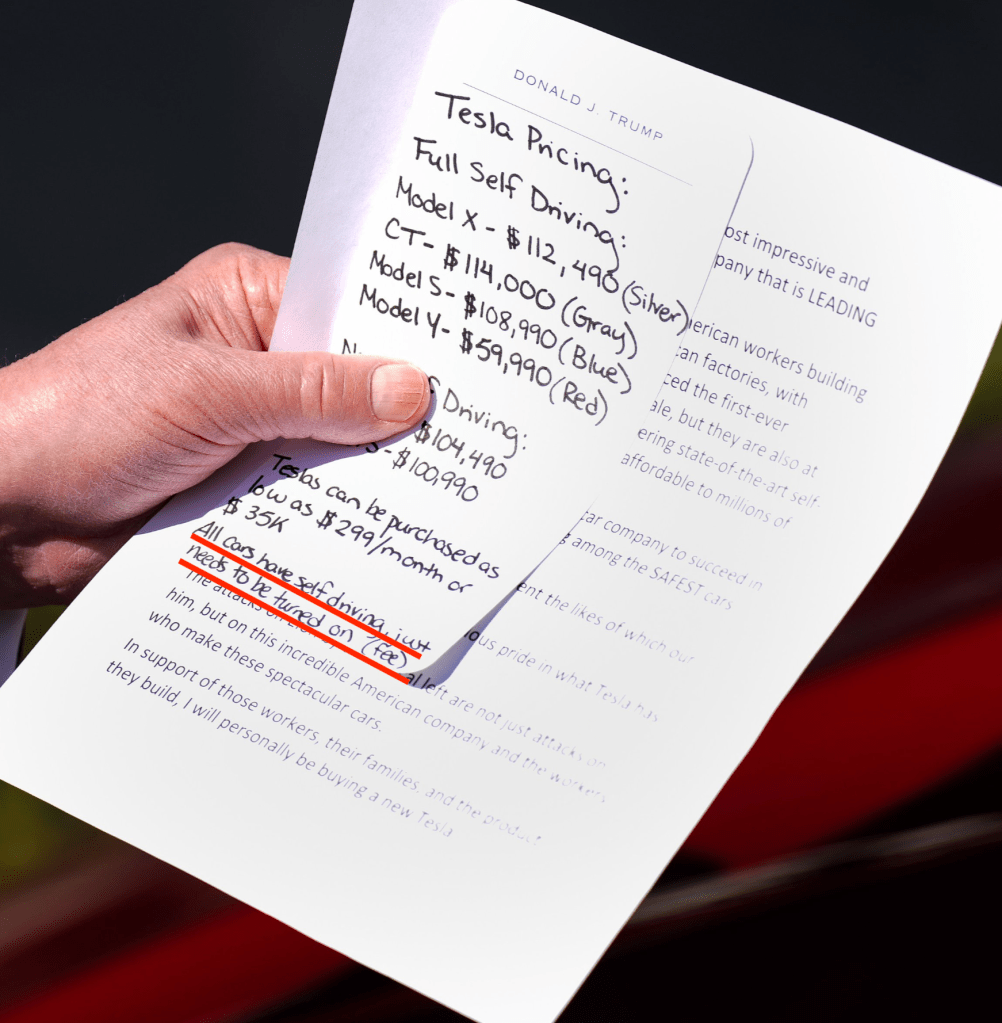 DONALD J. TRUMP
Tesla Pricing:
Full Self Driving:
Model X - $112,490 (Silver)
CT - $114,000 (Gray)
Model S - $108,990 (Blue)
Model Y - $59,990 (Red)
Driving:
$104,490
- $100,990
Teslas can be purchased as
low as $299/month or
$35K
All cars have self driving, just
needs to be turned on (fee)
ost impressive and
pany that is LEADING
erican workers building
can factories, with
ced the first-ever
ale, but they are also at
ering state-of-the-art self-
affordable to millions of
car company to succeed in
g among the SAFEST cars
ent the likes of which our
ious pride in what Tesla has
The attacks on
left are not just attacks on
him, but on this incredible American company and the workers
who make these spectacular cars.
In support of those workers, their families, and the product
they build, I will personally be buying a new Tesla